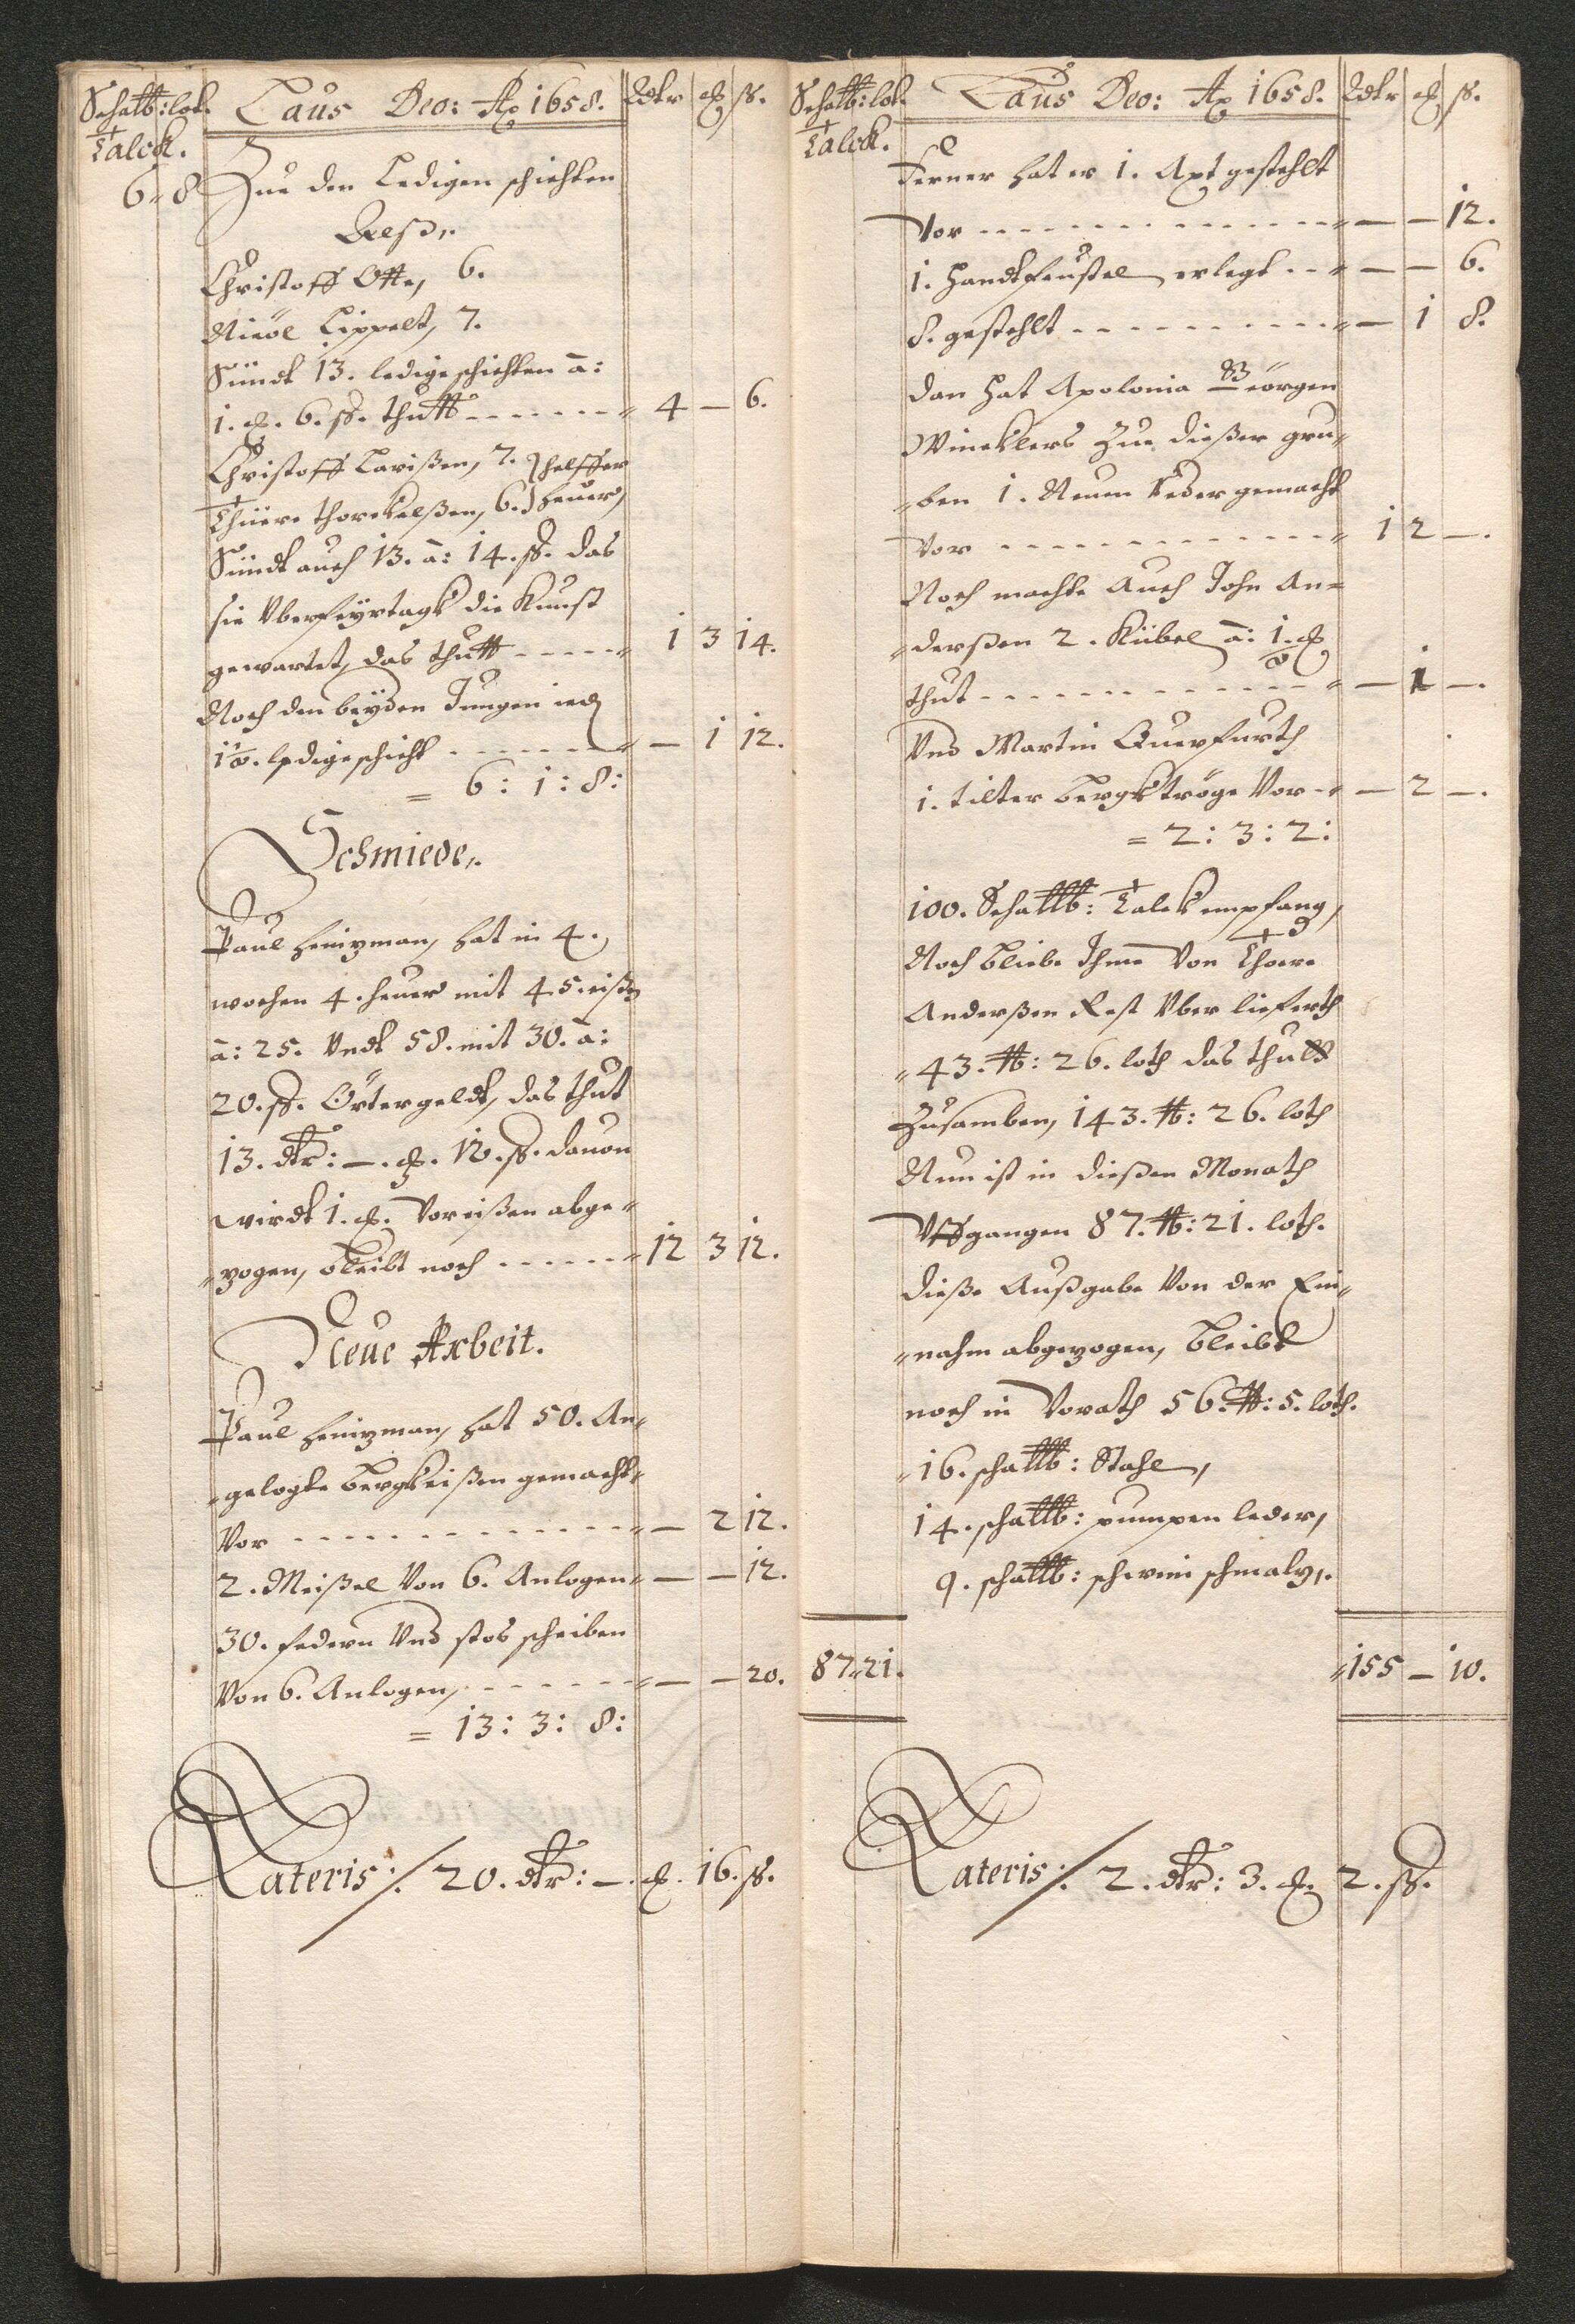 Schaltt: lot. Laus Deo: Ao 1658. Rdtr ȩ ß.
Talck.
6 " 8 Zue den Ledigen schichten
Christoff Otte, 6.
Nicol Lippelt, 7.
Sündt 13. ledige schichten a:
1. ȩ. 6. ß. thutt - - - - - - " 4 — 6.
Christoff Larißen, 7. } helffer
Thuere Thorekelßen, 6. } heuer,
Sündt auch 13. a: 14. ß. das
sie Vberfeyrtagk die Kunst
gewartet, das thutt - - - - - " 1 3 14.
Noch den beyden Jungen ied
1½. ledige schicht - - - - - - " — 1 12.
= 6 : 1 : 8 :
Schmiede,.
Paul heinzman, hat in 4.
wochen 4. heuer mit 45. eißn
a: 25. Vndt 58. mit 30. a:
20. ß. Örtergeldt, das thut
13. dtr: —. ȩ. 12. ß. dauon
wirdt 1. ȩ. Vor eißen abge"
"zogen, bleibt noch - - - - - - " 12 3 12.
Neue Arbeit.
Paul heinzman, hat 50. An"
"gelogte bergkeißen gemacht,
Vor - - - - - - - - - - - - " — 2 12.
2. Meißel Von 6. Anlogen " — — 12.
30. federn Vnd stos scheiben
Von 6. Anlogen, - - - - - - " — — 20.
= 13 : 3 : 8 :
Lateris:/ 20. dtr: —. ȩ. 16. ß.
Schaltt: lot. Laus Deo: Ao 1658. Rdtr ȩ ß.
Talck.
Ferner hat er 1. Axt gestehlt
Vor - - - - - - - - - - - - " — — 12.
1. Handtfeustel erlegt - - " — — 6.
8. gestehlt - - - - - - - - - " — 1 8.
Dan hat Apolonia Geörgen
Wincklers Zue dießer gru"
"ben 1. Neuen Keder gemacht
Vor - - - - - - - - - - - - " 1 2 —.
Noch machte Auch John An=
"derßen 2. Kübel a: ½. ȩ
thut - - - - - - - - - - - - " — 1 —.
Vnd Martin Querfurth
1. tilter bergktröge Vor - " — 2 —.
= 2 : 3 : 2 :
100. Schaltt: Talck empfang,
Noch bliebe Ihme Von Thoere
Anderßen Rest Vber lieferth
"43. tt: 26. loth das thutt
Zusamben, 143. tt: 26. loth
Nun ist in dießen Monath
Vffgangen 87. tt: 21. loth.
dieße Außgabe Von der Ein"
"nahm abgezogen, bleibt
noch in Vorath 56. tt: 5. loth.
"16. schaltt: Stahl,
14. schaltt: pumpen leder,
9. schaltt: schwein schmalz,.
87 " 21. " 155 — 10.
Lateris:/ 2. dtr: 3. ȩ. 2. ß.